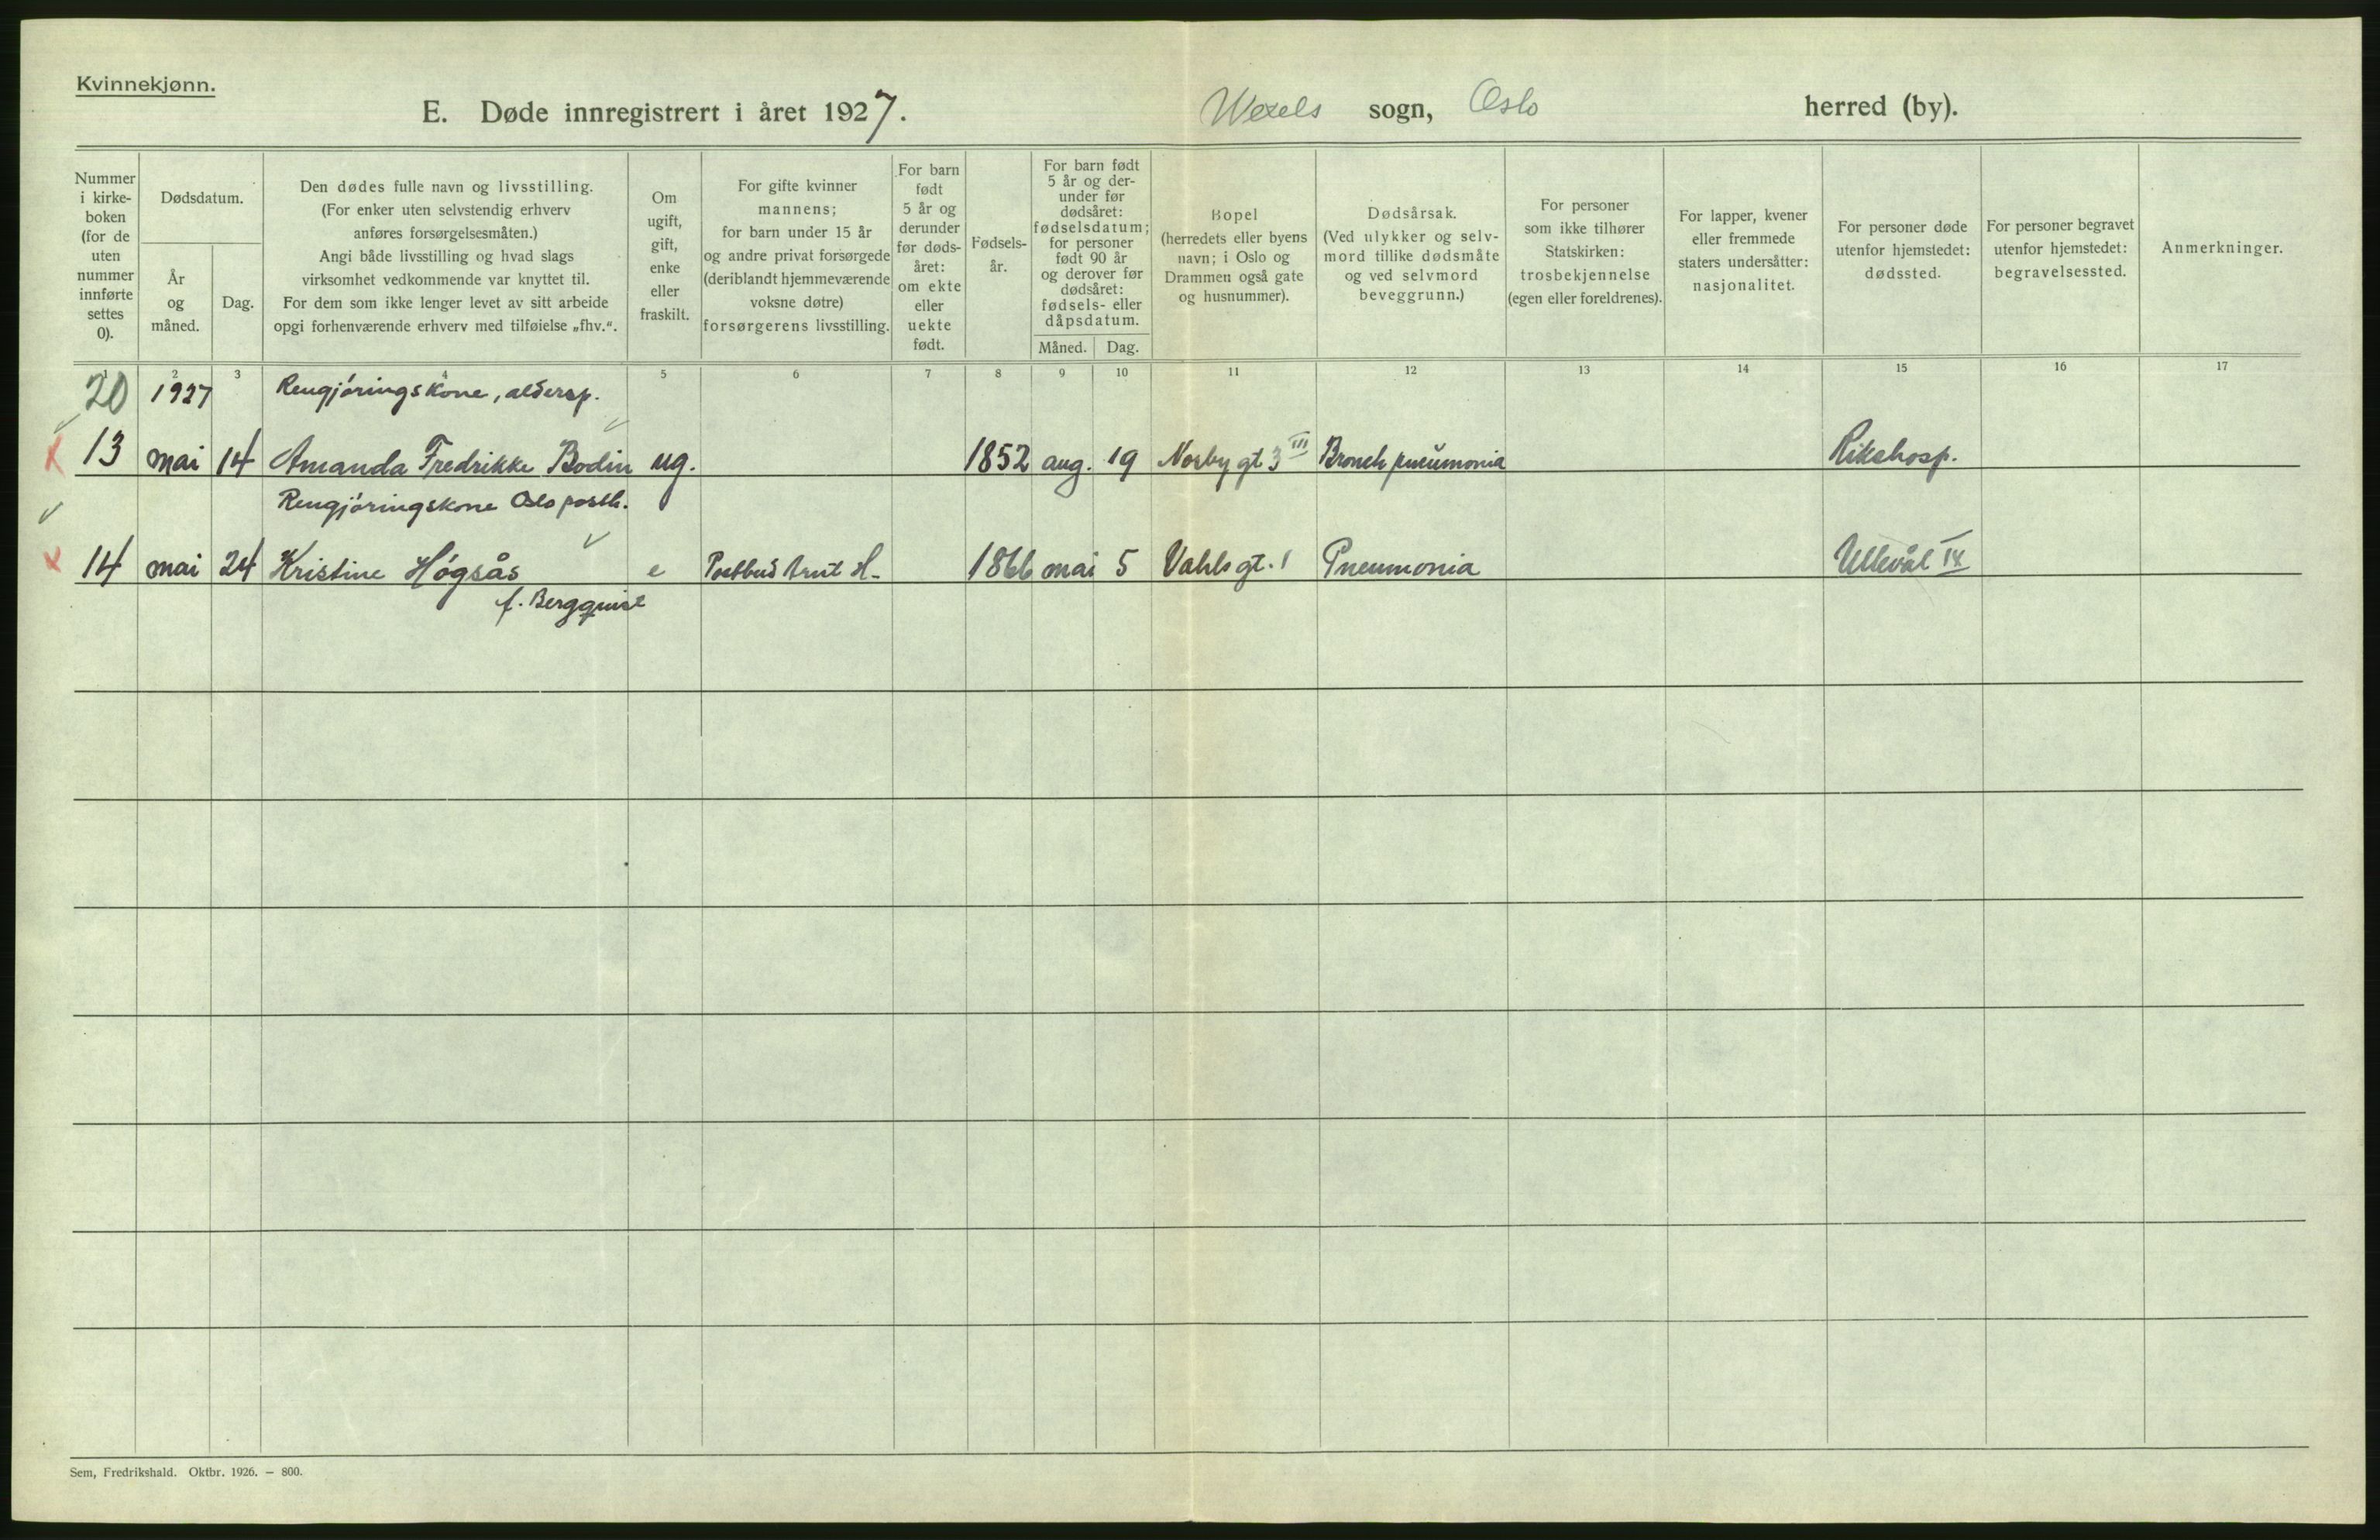 Kvinnekjønn.
E. Døde innregistrert i året 1927.
Wexels sogn, Oslo herred (by).
Nummer i kirkeboken (for de uten nummer innførte settes 0).
Dødsdatum.
År og måned.
Dag.
Den dødes fulle navn og livsstilling.
(For enker uten selvstendig erhverv
anføres forsørgelsesmåten.)
Angi både livsstilling og hvad slags
virksomhet vedkommende var knyttet til.
For dem som ikke lenger levet av sitt arbeide
opgi forhenværende erhverv med tilføielse „fhv.“.
Om
ugift,
gift,
enke
eller
fraskilt.
For gifte kvinner
mannens;
for barn under 15 år
og andre privat forsørgede
(deriblandt hjemmeværende
voksne døtre)
forsørgerens livsstilling.
For barn
født
5 år og
derunder
før døds-
året:
om ekte
eller
uekte
født.
Fødsels-
år.
For barn født
5 år og der-
under før
dødsåret:
fødselsdatum;
for personer
født 90 år
og derover før
dødsåret:
fødsels- eller
dåpsdatum.
Måned. Dag.
Bopel
(herredets eller byens
navn; i Oslo og
Drammen også gate
og husnummer).
Dødsårsak.
(Ved ulykker og selv-
mord tillike dødsmåte
og ved selvmord
beveggrunn.)
For personer
som ikke tilhører
Statskirken:
trosbekjennelse
(egen eller foreldrenes).
For lapper, kvener
eller fremmede
staters undersåtter:
nasjonalitet.
For personer døde
utenfor hjemstedet:
dødssted.
For personer begravet
utenfor hjemstedet:
begravelsessted.
Anmerkninger.
1 2 3 4 5 6 7 8 9 10 11 12 13 14 15 16 17
20 1927 Rengjøringskone, aldersp.
13 mai 14 Amanda Fredrikke Bodin ug. 1852 aug. 19 Norby gt 3 III Bronch pneumonia Rikshosp.
Rengjøringskone Oslo postk.
14 mai 24 Kristine Høgsås e Postbud Arnt H. 1866 mai 5 Vahls gt. 1 Pneumonia Ullevål IX
f. Bergquist
Sem, Fredrikshald. Oktbr. 1926. — 800.